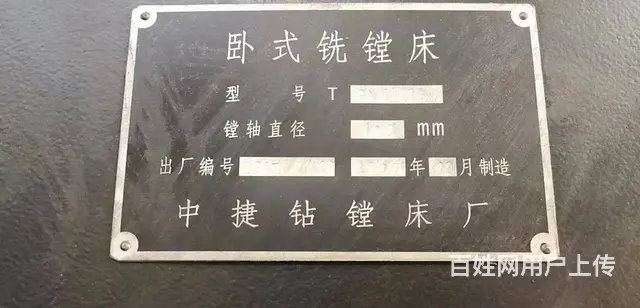 卧式铣镗床
型 号 T
镗轴直径 mm
出厂编号 年 月制造
中捷钻镗床厂
百姓网用户上传